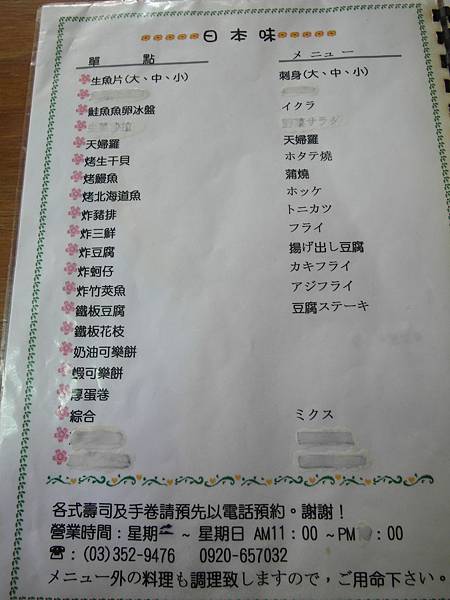 日本味
單點 メニュー
生魚片(大、中、小) 刺身(大、中、小)
鮭魚魚卵冰盤 イクラ
サラダ
天婦羅 天婦羅
烤生干貝 ホタテ焼
烤鰻魚 蒲燒
烤北海道魚 ホッケ
炸豬排 トニカツ
炸三鮮 フライ
炸豆腐 揚げ出し豆腐
炸蚵仔 カキフライ
炸竹莢魚 アジフライ
鐵板豆腐 豆腐ステーキ
鐵板花枝
奶油可樂餅
蝦可樂餅
厚蛋卷
綜合 ミクス
各式壽司及手卷請預先以電話預約。謝謝!
營業時間:星期二 ~ 星期日 AM11:00 ~PM :00
☎:(03)352-9476 0920-657032
メニュー外の料理も調理致しますので,ご用命下さい。